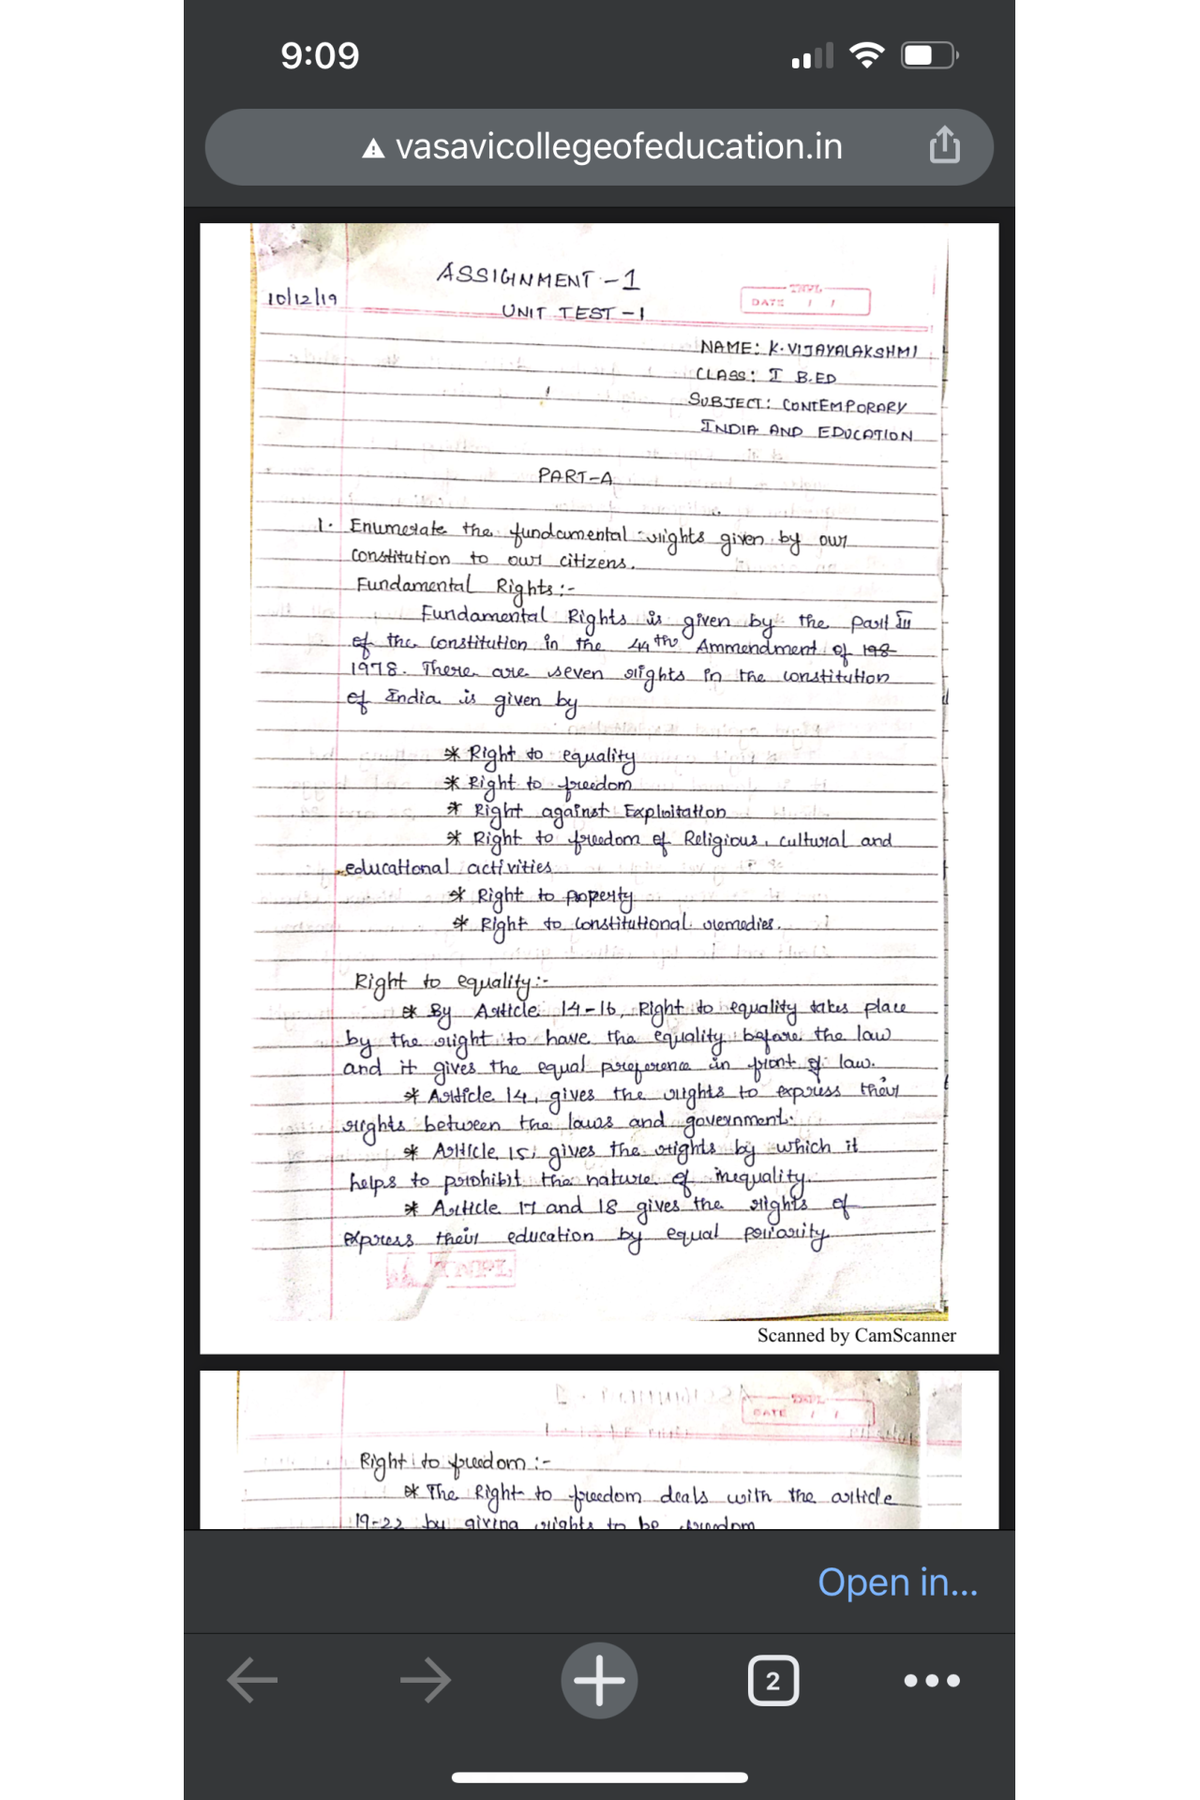 9:09
vasavicollegeofeducation.in
ASSIGNMENT - 1
10/12/19
UNIT TEST - 1
DATE / /
NAME: K. VIJAYALAKSHMI
CLASS: I B.ED
SUBJECT: CONTEMPORARY
INDIA AND EDUCATION
PART-A
1. Enumerate the fundamental rights given by our
constitution to our citizens.
Fundamental Rights :-
Fundamental Rights is given by the part III
of the constitution in the 44th Ammendment of 198
1978. There are seven rights in the constitution
of India is given by
* Right to equality
* Right to freedom
* Right against Exploitation
* Right to freedom of Religious, cultural and
educational activities
* Right to property
* Right to constitutional remedies.
Right to equality :-
* By Article 14-16, Right to equality takes place
by the right to have the equality before the law
and it gives the equal preference in front of law.
* Article 14, gives the rights to express their
rights between the laws and government.
* Article 15, gives the rights by which it
helps to prohibit the nature of inequality.
* Article 17 and 18 gives the rights of
express their education by equal poriority
Scanned by CamScanner
DATE / /
Right to freedom :-
* The Right to freedom deals with the article
19-22 by giving rights to be freedom
Open in...
2